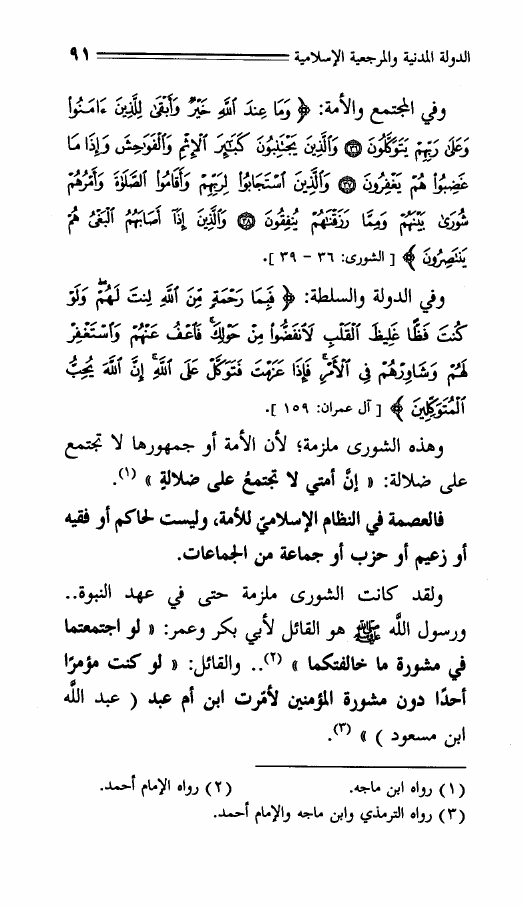 الدولة المدنية والمرجعية الإسلامية ٩١
وفي المجتمع والأمة: ﴿ وَمَا عِندَ ٱللَّهِ خَيْرٌ وَأَبْقَىٰ لِلَّذِينَ ءَامَنُوا۟
وَعَلَىٰ رَبِّهِمْ يَتَوَكَّلُونَ ٣٦ وَٱلَّذِينَ يَجْتَنِبُونَ كَبَٰٓئِرَ ٱلْإِثْمِ وَٱلْفَوَٰحِشَ وَإِذَا مَا
غَضِبُوا۟ هُمْ يَغْفِرُونَ ٣٧ وَٱلَّذِينَ ٱسْتَجَابُوا۟ لِرَبِّهِمْ وَأَقَامُوا۟ ٱلصَّلَوٰةَ وَأَمْرُهُمْ
شُورَىٰ بَيْنَهُمْ وَمِمَّا رَزَقْنَٰهُمْ يُنفِقُونَ ٣٨ وَٱلَّذِينَ إِذَآ أَصَابَهُمُ ٱلْبَغْىُ هُمْ
يَنتَصِرُونَ ﴾ [ الشورى: ٣٦ - ٣٩ ].
وفي الدولة والسلطة: ﴿ فَبِمَا رَحْمَةٍ مِّنَ ٱللَّهِ لِنتَ لَهُمْ ۖ وَلَوْ
كُنتَ فَظًّا غَلِيظَ ٱلْقَلْبِ لَٱنفَضُّوا۟ مِنْ حَوْلِكَ ۖ فَٱعْفُ عَنْهُمْ وَٱسْتَغْفِرْ
لَهُمْ وَشَاوِرْهُمْ فِى ٱلْأَمْرِ ۖ فَإِذَا عَزَمْتَ فَتَوَكَّلْ عَلَى ٱللَّهِ ۚ إِنَّ ٱللَّهَ يُحِبُّ
ٱلْمُتَوَكِّلِينَ ﴾ [ آل عمران: ١٥٩ ].
وهذه الشورى ملزمة؛ لأن الأمة أو جمهورها لا تجتمع
على ضلالة: « إنَّ أمتي لا تجتمعُ على ضلالةٍ » (١).
فالعصمة في النظام الإسلاميّ للأمة، وليست لحاكم أو فقيه
أو زعيم أو حزب أو جماعة من الجماعات.
ولقد كانت الشورى ملزمة حتى في عهد النبوة..
ورسول اللَّه ﷺ هو القائل لأبي بكر وعمر: « لو اجتمعتما
في مشورة ما خالفتكما » (٢).. والقائل: « لو كنت مؤمرًا
أحدًا دون مشورة المؤمنين لأمّرت ابن أم عبد ( عبد اللَّه
ابن مسعود ) » (٣).
(١) رواه ابن ماجه. (٢) رواه الإمام أحمد.
(٣) رواه الترمذي وابن ماجه والإمام أحمد.